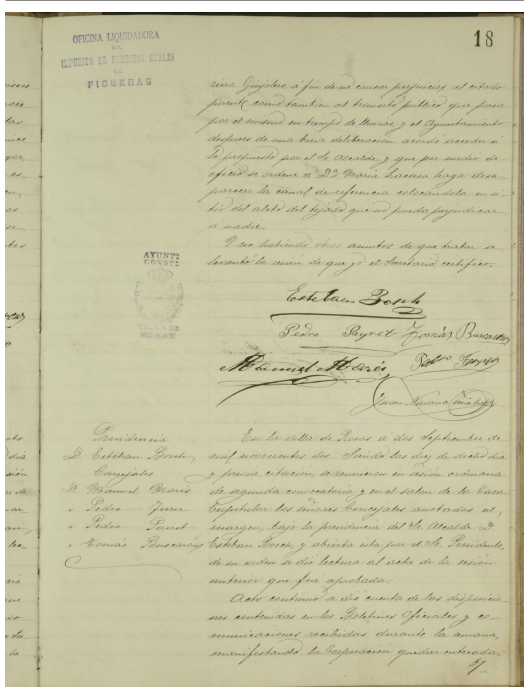 18
OFICINA LIQUIDADORA
DEL
IMPUESTO DE DERECHOS REALES
DE
FIGUERAS
á fin de no causar perjuicios al citado
puente como tambien al transito público que pasa
por el mismo en tiempo de lluvias, y el Ayuntamiento
despues de una breve deliberacion acordó acceder a
lo propuesto por el Sr. Alcalde y que por medio de
oficio se ordene a Dª Maria haga desa-
parecer la canal de referencia colocandola en si-
tio del alero del tejado que no pueda perjudicar
a nadie.
Y no habiendo otros asuntos de que tratar se
levantó la sesion de que yo el Secretario certifico.
AYUNTº
CONSTL
VILLA DE
ROSAS
Esteban Bosch
Pedro Payret Tomás Buscarons
Manuel Marés
Juan
Presidencia
D. Esteban Bosch
Concejales
D. Manuel Marés
" Pedro
" Pedro Payret
" Tomás Buscarons
En la villa de Rosas a dos Septiembre de
mil novecientos dos. Siendo las diez de dicho dia
y previa citacion, se reunieron en sesion ordinaria
de segunda convocatoria y en el salon de la Casa
Capitular los señores Concejales anotados al
margen, bajo la presidencia del Sr. Alcalde D.
Esteban Bosch, y abierta esta por el Sr. Presidente,
de su orden se dió lectura al acta de la sesion
anterior que fue aprobada.
Acto continuo se dió cuenta de las disposicio-
nes contenidas en los Boletines Oficiales y co-
municaciones recibidas durante la semana,
manifestando la Corporacion quedar enterada.